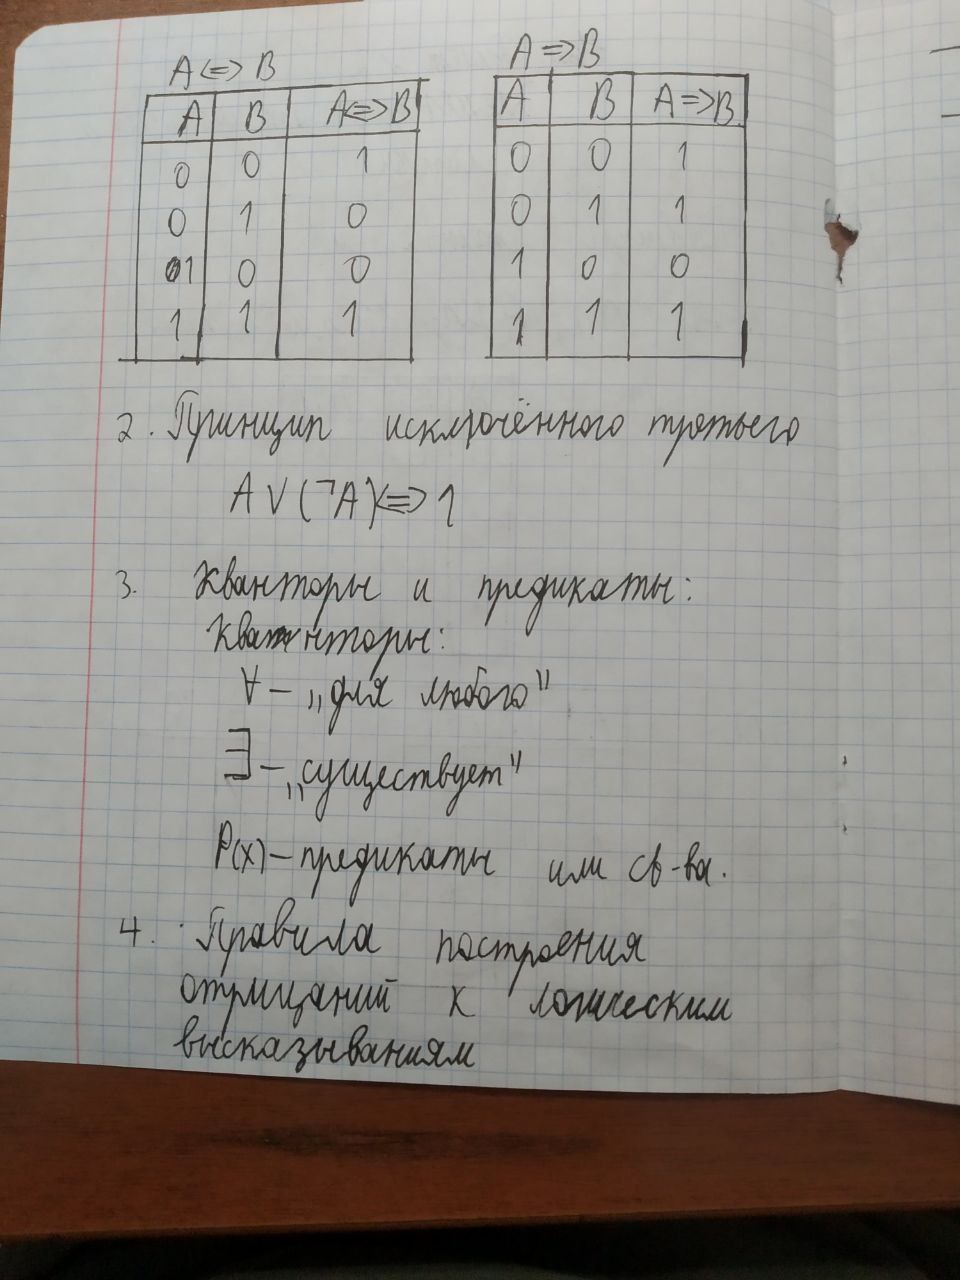 A <=> B
A B A<=>B
0 0 1
0 1 0
1 0 0
1 1 1
A => B
A B A=>B
0 0 1
0 1 1
1 0 0
1 1 1
2. Принцип исключённого третьего
A ∨ (¬A) <=> 1
3. Кванторы и предикаты:
Кванторы:
∀ – „для любого"
∃ – „существует"
P(x) – предикаты или св-ва.
4. Правила построения
отрицаний к логическим
высказываниям